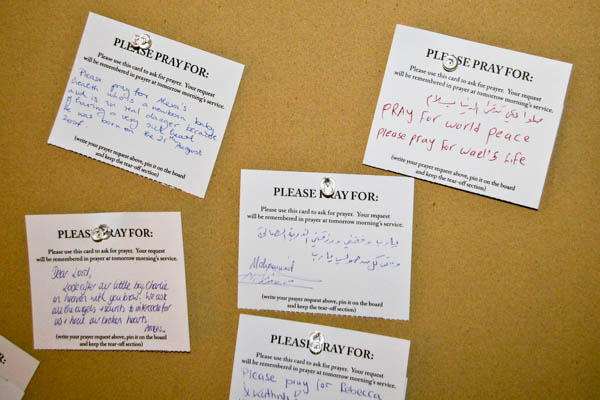 PLEASE PRAY FOR:
Please use this card to ask for prayer. Your request
will be remembered in prayer at tomorrow morning's service.
Please pray for
health who is a newborn baby
and is in real danger because
of having a very sick heart
he was born on the 21 August
(write your prayer request above, pin it on the board
and keep the tear-off section)
PLEASE PRAY FOR:
Please use this card to ask for prayer. Your request
will be remembered in prayer at tomorrow morning's service.
PRAY for world peace
please pray for wael's life
(write your prayer request above, pin it on the board
and keep the tear-off section)
PLEASE PRAY FOR:
Please use this card to ask for prayer. Your request
will be remembered in prayer at tomorrow morning's service.
Dear Lord,
Look after our little boy Charlie
in heaven with you now. We ask
all the angels & saints to intercede for
us & heal our broken hearts.
Amen.
(write your prayer request above, pin it on the board
and keep the tear-off section)
PLEASE PRAY FOR:
Please use this card to ask for prayer. Your request
will be remembered in prayer at tomorrow morning's service.
Mohammad
(write your prayer request above, pin it on the board
and keep the tear-off section)
PLEASE PRAY FOR:
Please use this card to ask for prayer. Your request
will be remembered in prayer at tomorrow morning's service.
Please pray for Rebecca